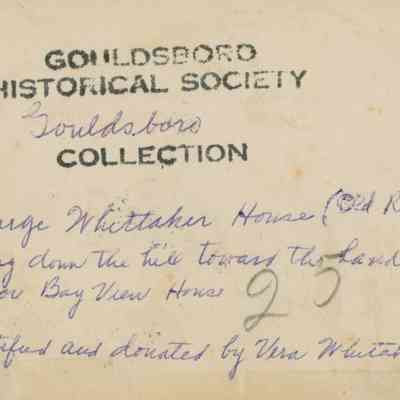 GOULDSBORO
HISTORICAL SOCIETY
Gouldsboro
COLLECTION
arge Whittaker House (Old R
ng down the hill toward the Land
or Bay View House
25
ified and donated by Vera Whitak